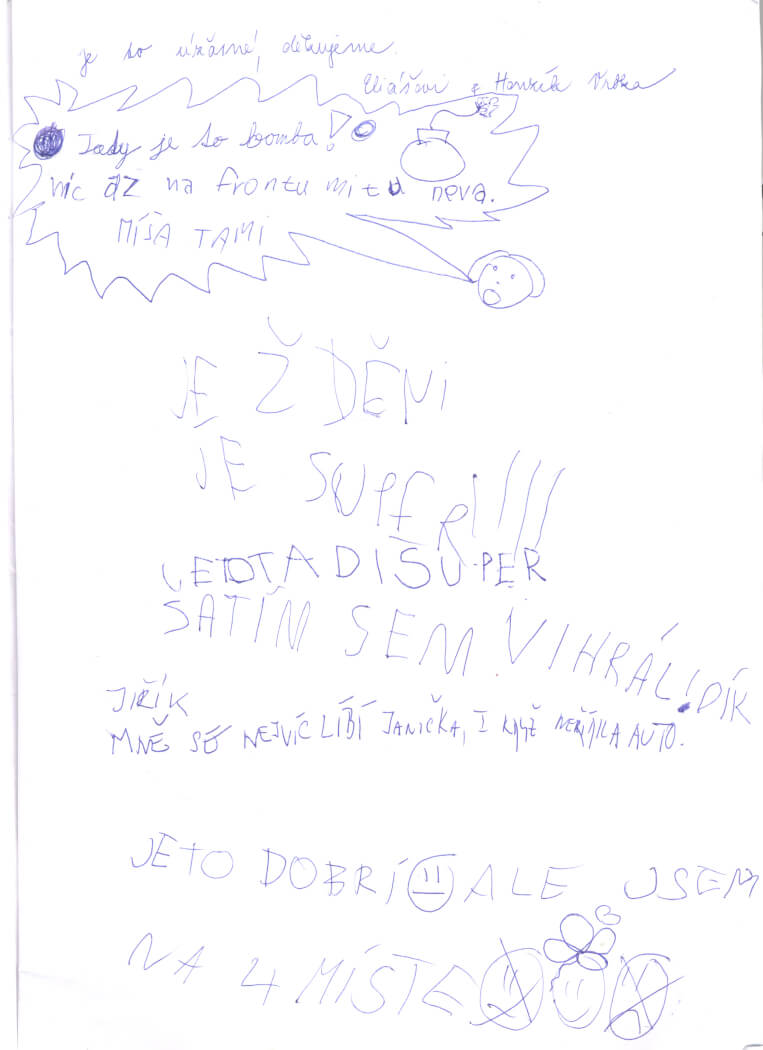 je to úžasné, děkujeme.
Eliášovi a Honzík Vrbka
Tady je to bomba!
níc až na frontu mi tu neva.
MÍŠA TAMI
JEŽDĚNI
JE SUPER!!!!
JETOTADISUPER
ŠATÍM SEM VIHRÁL! DÍK
JIŘÍK
MNĚ SE NEJVÍC LÍBÍ JANIČKA, I KDYŽ NEŘÍDILA AUTO.
JETO DOBRÍ ALE JSEM
NA 4 MÍSTE